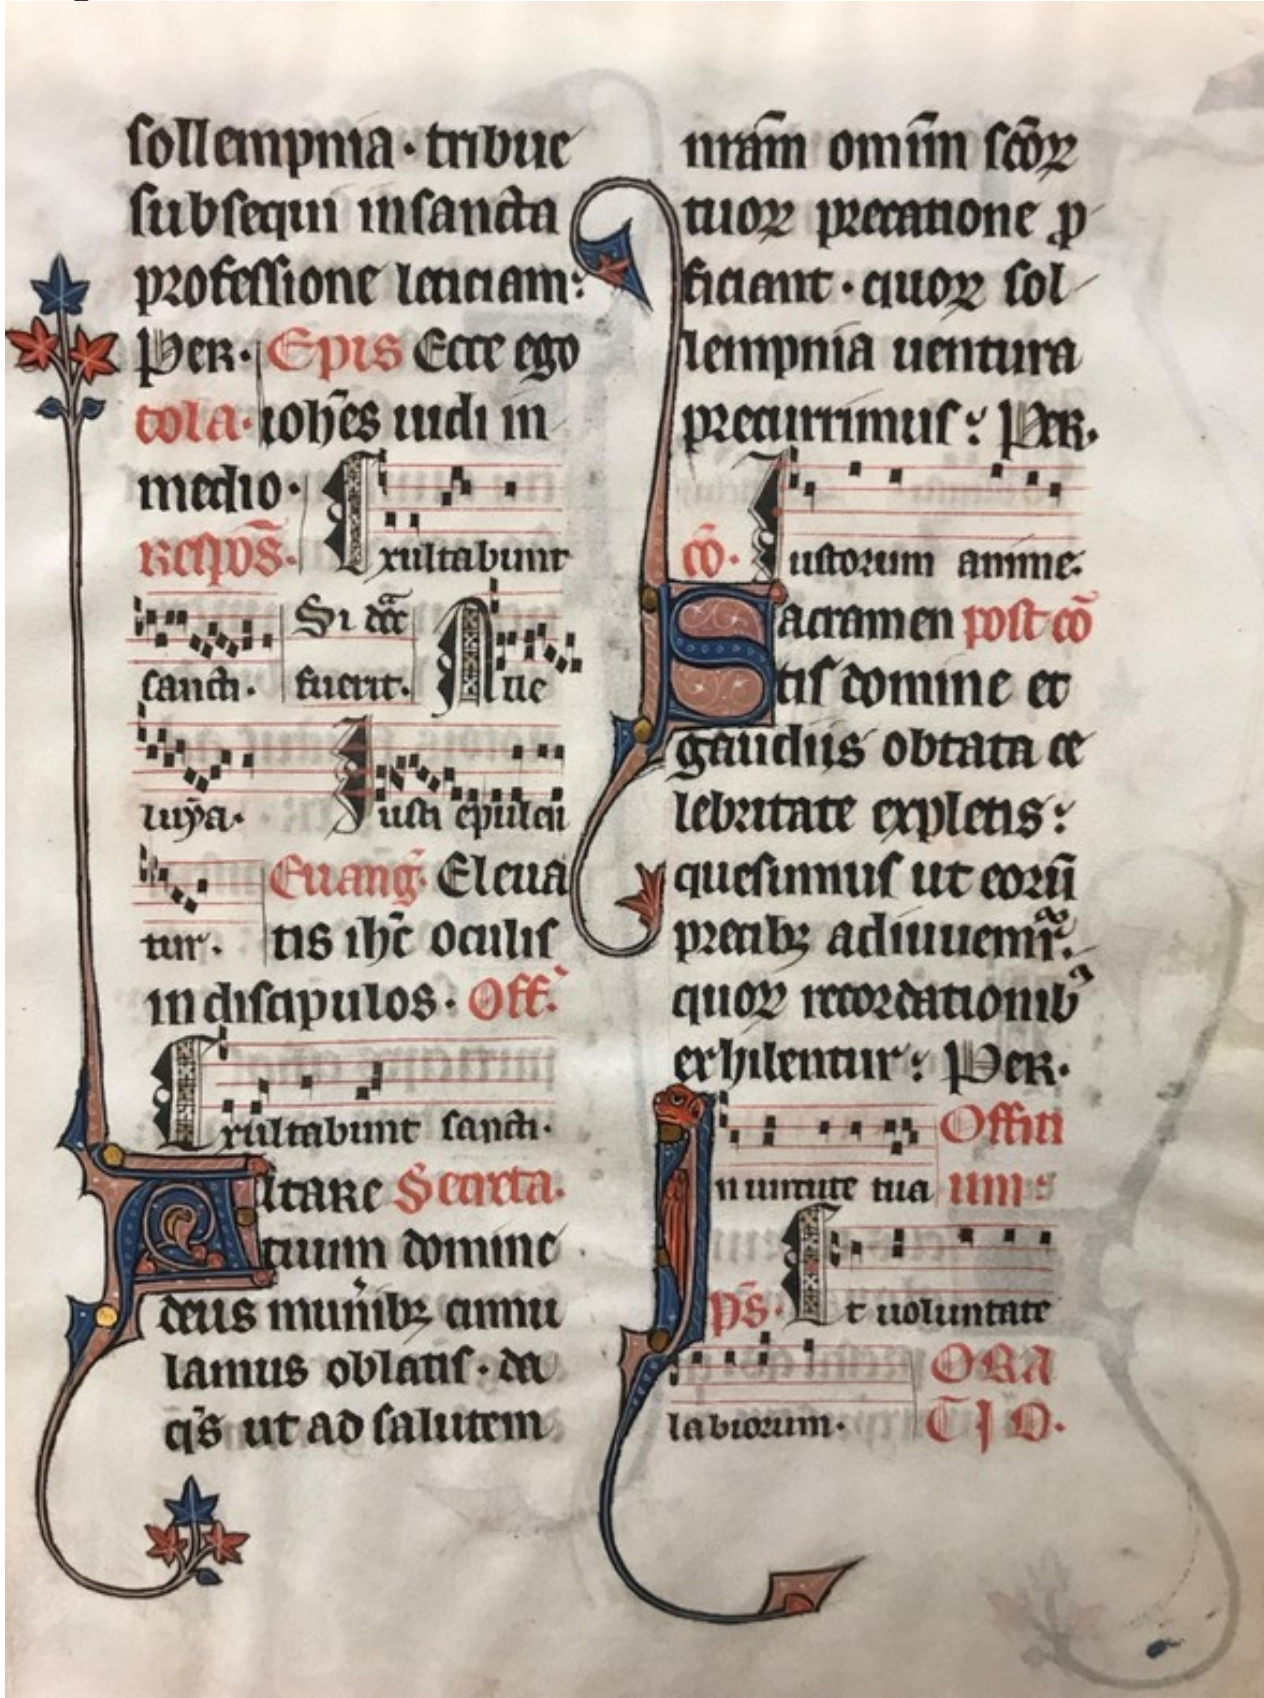 sollempnia · tribue
subsequi in sancta
professione leticiam :
Per · Epis Ecce ego
tola · ioh̄es uidi in
medio ·
Respōs · Exultabunt
sancti · Si dc̄a fuerit · Alle
luya · Iusti epulen
tur · Euanḡ · Eleua
tis ih̄c oculis
in discipulos · Off̄ ·
Exultabunt sancti ·
Altare Secreta ·
tuum domine
deus munib; cumu
lamus oblatis · da
q̄s ut ad salutem
nr̄am omīm sc̄oꝝ
tuoꝝ precatione ꝓ
ficiant · quoꝝ sol
lempnia uentura
precurrimus : Per ·
cō · Iustorum anime ·
Sacramen post cō
tis domine et
gaudiis obtata ce
lebritate expletis :
quesumus ut eorū
precib; adiuuemr̄ ·
quoꝝ recordationib;
exhilentur : Per ·
In uirtute tua Offiti
um :
ps̄ · Et uoluntate
labiorum · ORA
TIO ·